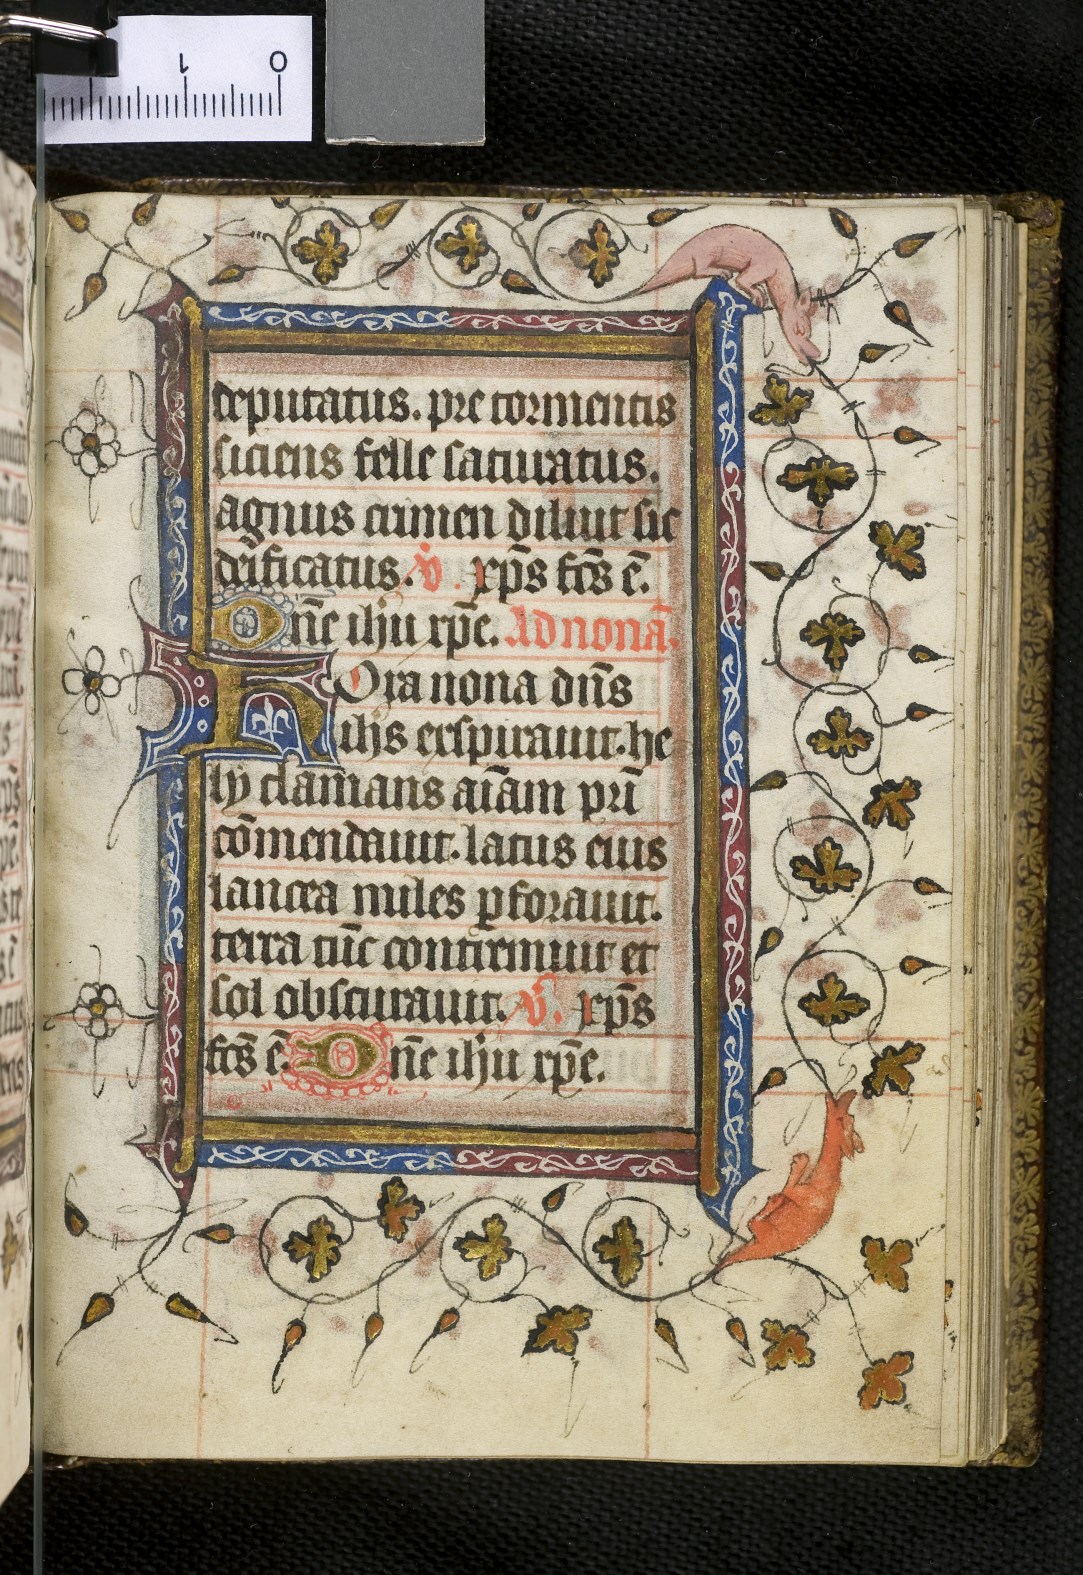 1 0
deputatus. pre tormentis
siciens felle saturatus.
agnus crimen diluit sic
deificatus. v̄. xp̄s fc̄s ē.
Dn̄e ihu xp̄e. Ad nonā.
Hora nona dn̄s
ihs exspirauit. he
ly clamans aīam pr̄i
cōmendauit. latus eius
lancea miles pforauit.
terra tūc contremuit et
sol obscurauit. v̄. xp̄s
fc̄s ē. Dn̄e ihu xp̄e.